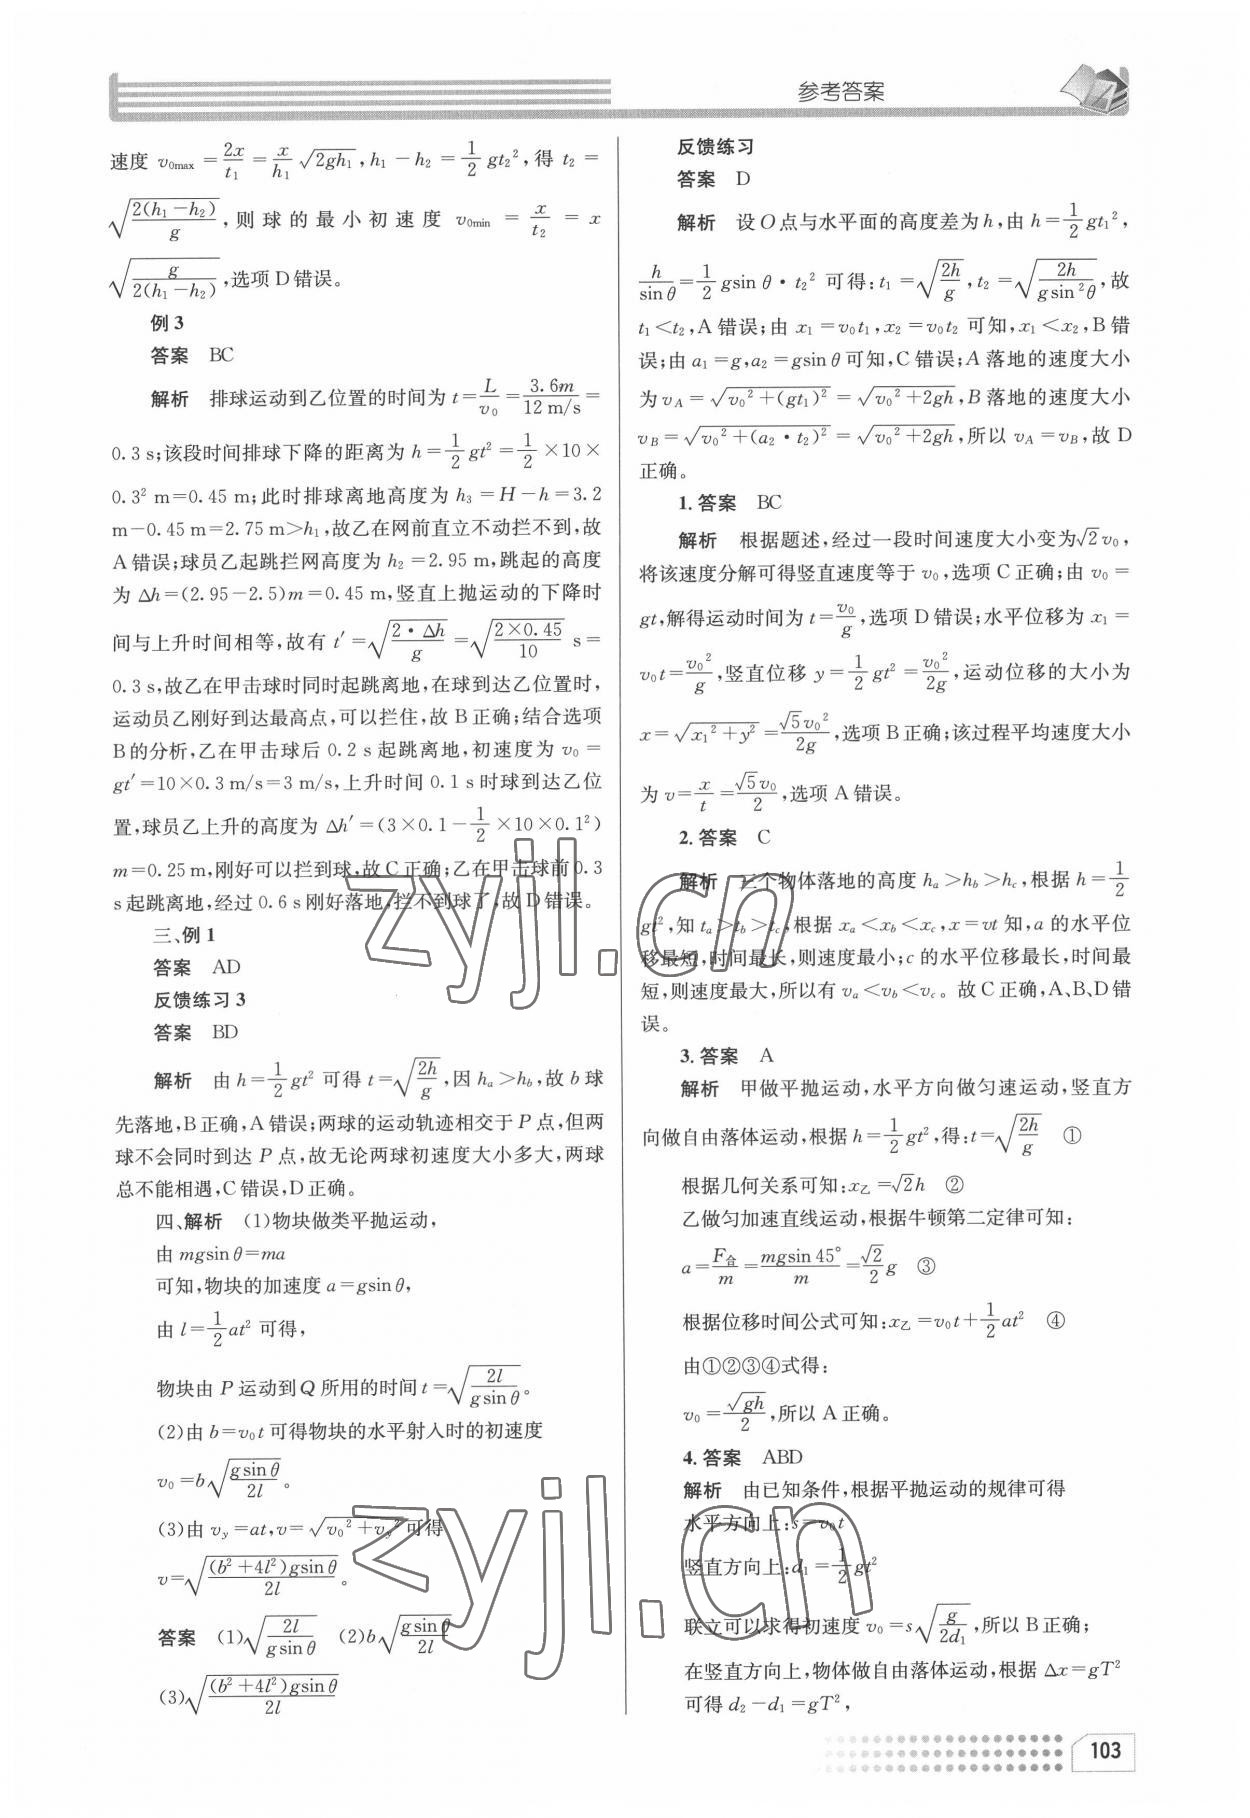 参考答案
速度 v₀max = 2x/t₁ = x/h₁ √(2gh₁), h₁-h₂ = 1/2 gt₂², 得 t₂ =
√(2(h₁-h₂)/g), 则球的最小初速度 v₀min = x/t₂ = x
√(g/(2(h₁-h₂))), 选项 D 错误。
例 3
答案 BC
解析 排球运动到乙位置的时间为 t = L/v₀ = 3.6m/12 m/s =
0.3 s; 该段时间排球下降的距离为 h = 1/2 gt² = 1/2 ×10×
0.3² m=0.45 m; 此时排球离地高度为 h₃ = H-h=3.2
m-0.45 m=2.75 m>h₁, 故乙在网前直立不动拦不到, 故
A 错误; 球员乙起跳拦网高度为 h₂=2.95 m, 跳起的高度
为 Δh=(2.95-2.5)m=0.45 m, 竖直上抛运动的下降时
间与上升时间相等, 故有 t′ = √(2·Δh/g) = √(2×0.45/10) s=
0.3 s, 故乙在甲击球时同时起跳离地, 在球到达乙位置时,
运动员乙刚好到达最高点, 可以拦住, 故 B 正确; 结合选项
B 的分析, 乙在甲击球后 0.2 s 起跳离地, 初速度为 v₀ =
gt′=10×0.3 m/s=3 m/s, 上升时间 0.1 s 时球到达乙位
置, 球员乙上升的高度为 Δh′=(3×0.1-1/2×10×0.1²)
m=0.25 m, 刚好可以拦到球, 故 C 正确; 乙在甲击球前 0.3
s 起跳离地, 经过 0.6 s 刚好落地, 拦不到球了, 故 D 错误。
三、例 1
答案 AD
反馈练习 3
答案 BD
解析 由 h=1/2 gt² 可得 t=√(2h/g), 因 hₐ>h_b, 故 b 球
先落地, B 正确, A 错误; 两球的运动轨迹相交于 P 点, 但两
球不会同时到达 P 点, 故无论两球初速度大小多大, 两球
总不能相遇, C 错误, D 正确。
四、解析 (1)物块做类平抛运动,
由 mgsin θ=ma
可知, 物块的加速度 a=gsin θ,
由 l=1/2 at² 可得,
物块由 P 运动到 Q 所用的时间 t=√(2l/(gsin θ))。
(2)由 b=v₀t 可得物块的水平射入时的初速度
v₀=b√(gsin θ/2l)。
(3)由 v_y=at, v=√(v₀²+v_y²) 可得
v=√((b²+4l²)gsin θ/2l)。
答案 (1)√(2l/(gsin θ)) (2)b√(gsin θ/2l)
(3)√((b²+4l²)gsin θ/2l)
反馈练习
答案 D
解析 设 O 点与水平面的高度差为 h, 由 h=1/2 gt₁²,
h/sin θ = 1/2 gsin θ·t₂² 可得: t₁=√(2h/g), t₂=√(2h/(gsin²θ)), 故
t₁<t₂, A 错误; 由 x₁=v₀t₁, x₂=v₀t₂ 可知, x₁<x₂, B 错
误; 由 a₁=g, a₂=gsin θ 可知, C 错误; A 落地的速度大小
为 v_A=√(v₀²+(gt₁)²)=√(v₀²+2gh), B 落地的速度大小
v_B=√(v₀²+(a₂·t₂)²)=√(v₀²+2gh), 所以 v_A=v_B, 故 D
正确。
1. 答案 BC
解析 根据题述, 经过一段时间速度大小变为√2 v₀,
将该速度分解可得竖直速度等于 v₀, 选项 C 正确; 由 v₀=
gt, 解得运动时间为 t=v₀/g, 选项 D 错误; 水平位移为 x₁=
v₀t=v₀²/g, 竖直位移 y=1/2 gt²=v₀²/2g, 运动位移的大小为
x=√(x₁²+y²)=√5v₀²/2g, 选项 B 正确; 该过程平均速度大小
为 v=x/t=√5v₀/2, 选项 A 错误。
2. 答案 C
解析 三个物体落地的高度 hₐ>h_b>h_c, 根据 h=1/2
gt², 知 tₐ>t_b>t_c, 根据 xₐ<x_b<x_c, x=vt 知, a 的水平位
移最短, 时间最长, 则速度最小; c 的水平位移最长, 时间最
短, 则速度最大, 所以有 vₐ<v_b<v_c。故 C 正确, A、B、D 错
误。
3. 答案 A
解析 甲做平抛运动, 水平方向做匀速运动, 竖直方
向做自由落体运动, 根据 h=1/2 gt², 得: t=√(2h/g) ①
根据几何关系可知: x乙=√2h ②
乙做匀加速直线运动, 根据牛顿第二定律可知:
a=F合/m=mgsin 45°/m=√2/2 g ③
根据位移时间公式可知: x乙=v₀t+1/2 at² ④
由①②③④式得:
v₀=√(gh)/2, 所以 A 正确。
4. 答案 ABD
解析 由已知条件, 根据平抛运动的规律可得
水平方向上: s=v₀t
竖直方向上: d₁=1/2 gt²
联立可以求得初速度 v₀=s√(g/2d₁), 所以 B 正确;
在竖直方向上, 物体做自由落体运动, 根据 Δx=gT²
可得 d₂-d₁=gT²,
103
zyjl.cn
zyjl.cn